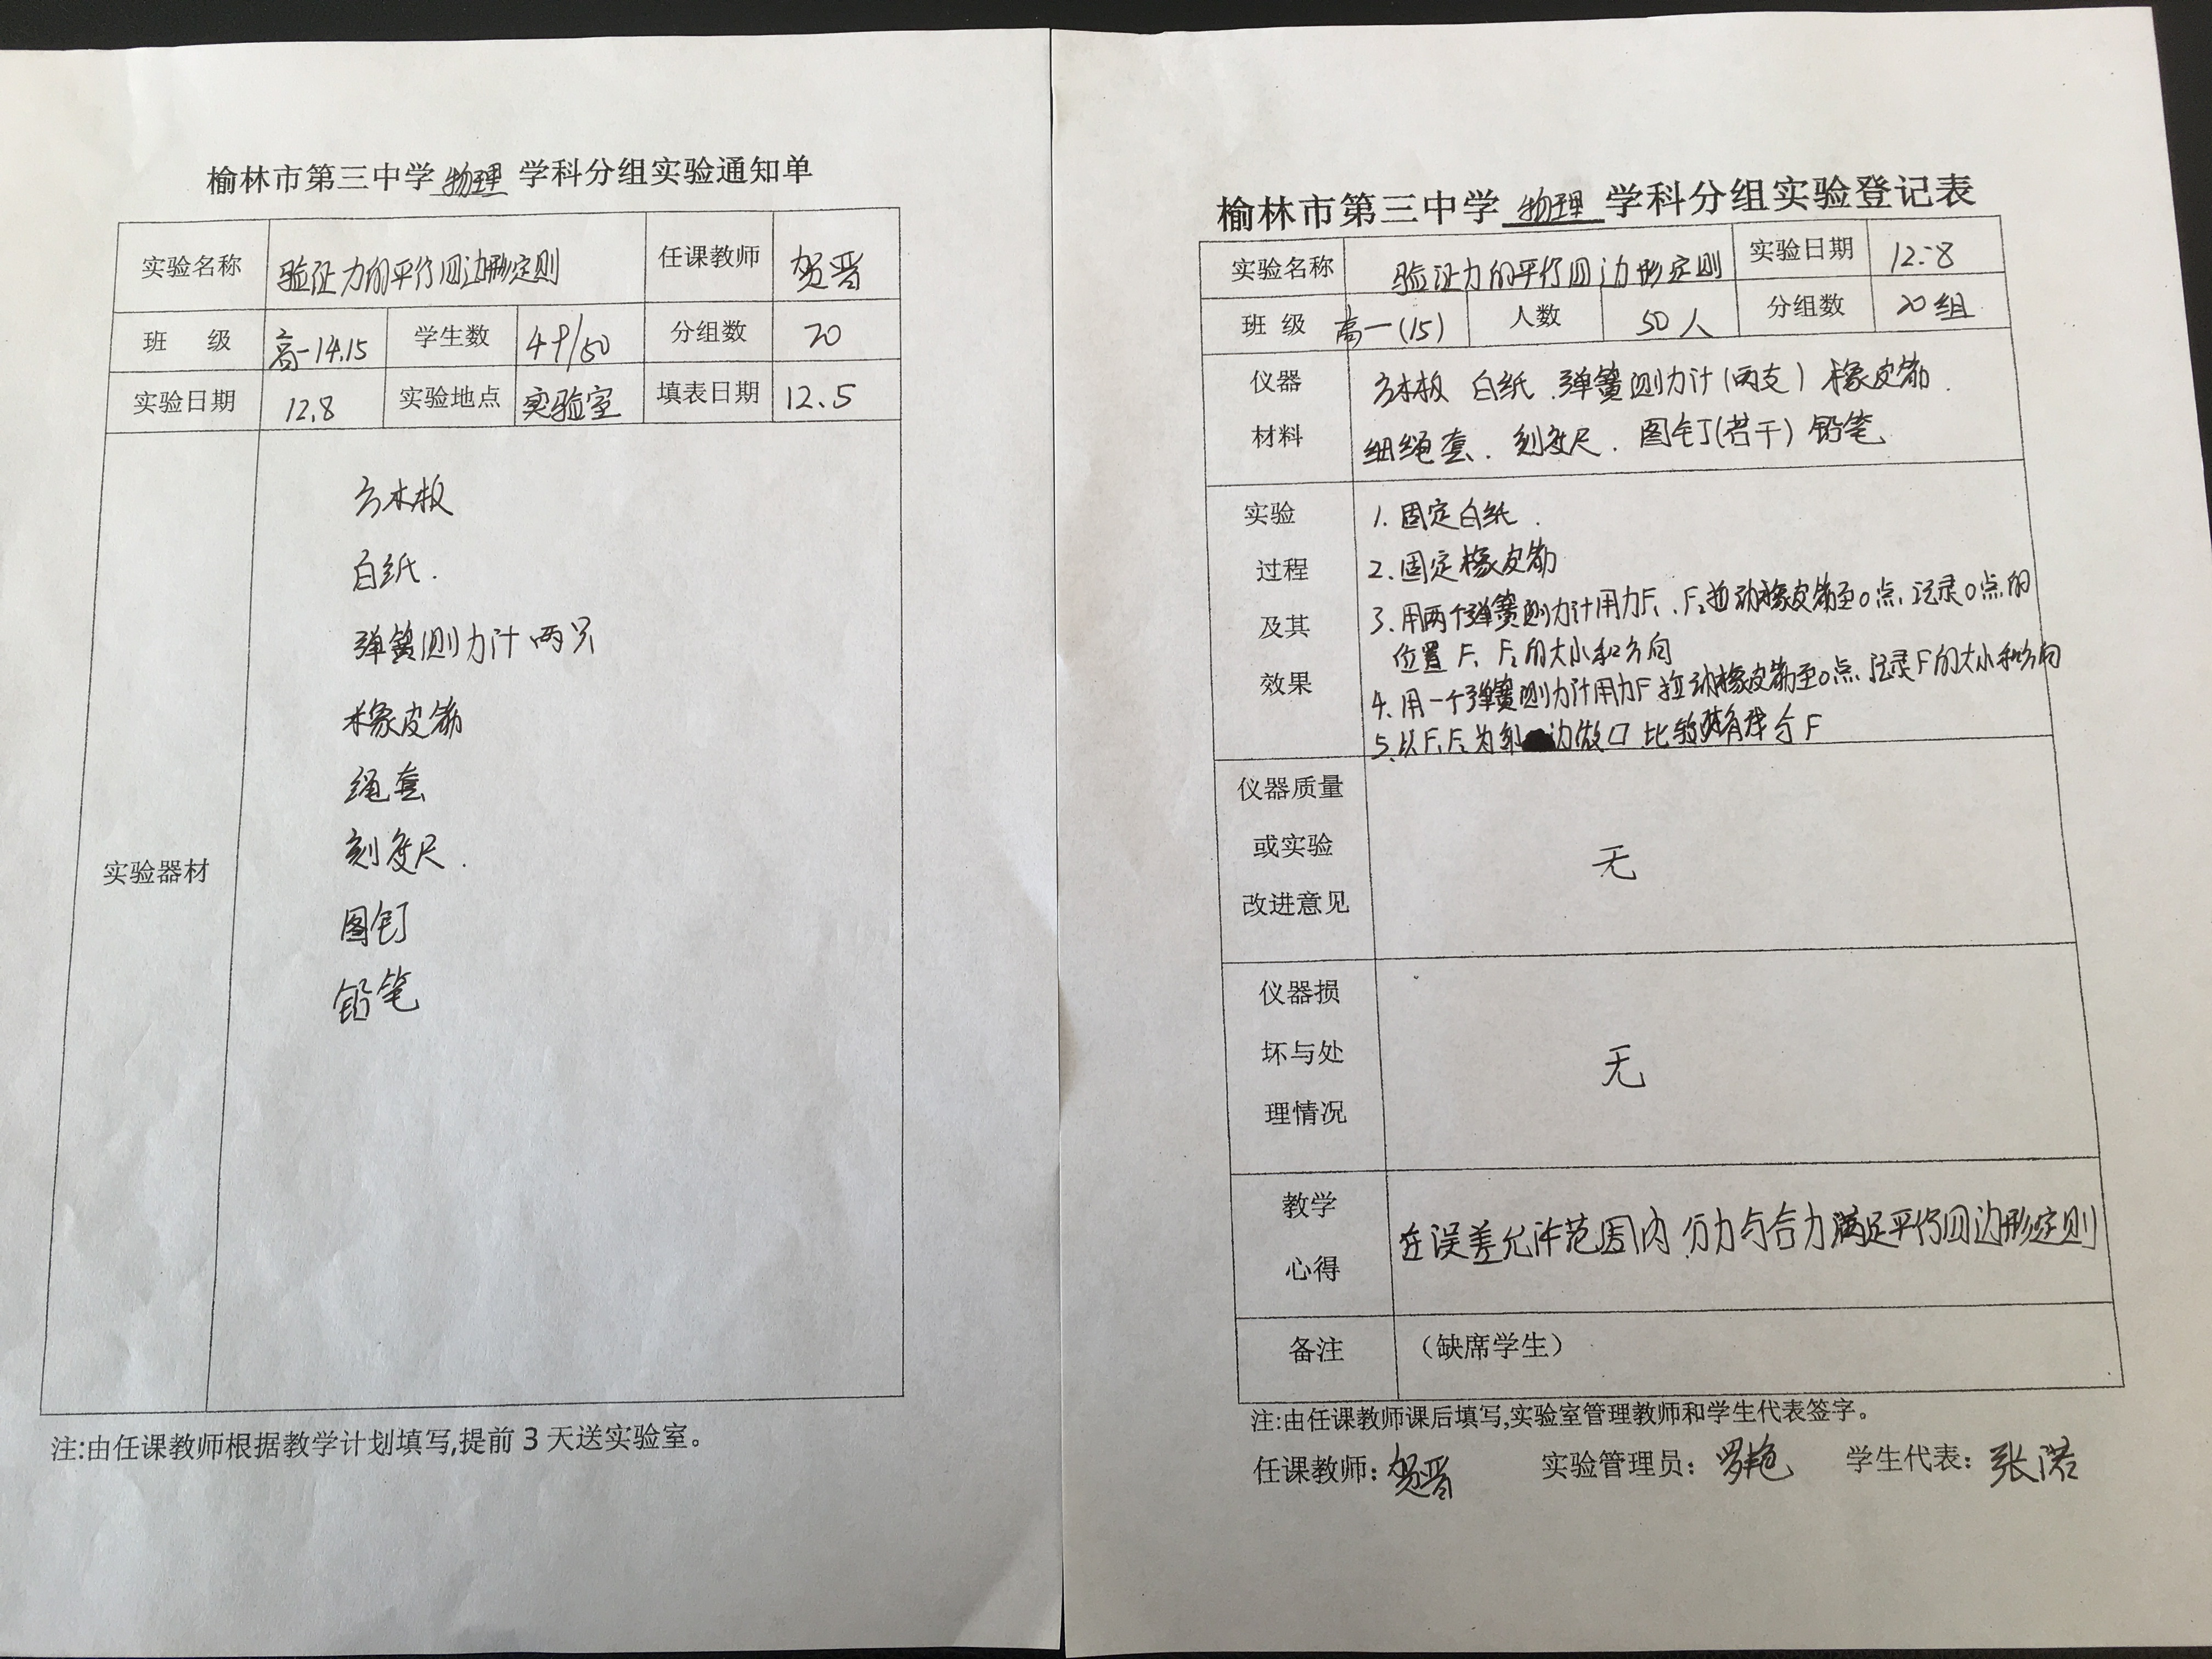 榆林市第三中学 物理 学科分组实验通知单
实验名称 验证力的平行四边形定则 任课教师 贺晋
班 级 高一14.15 学生数 49/50 分组数 20
实验日期 12.8 实验地点 实验室 填表日期 12.5
实验器材
方木板
白纸.
弹簧测力计两只
橡皮筋
绳套
刻度尺.
图钉
铅笔
注:由任课教师根据教学计划填写,提前3天送实验室。
榆林市第三中学 物理 学科分组实验登记表
实验名称 验证力的平行四边形定则 实验日期 12.8
班 级 高一(15) 人数 50人 分组数 20组
仪器 材料
方木板 白纸.弹簧测力计(两支) 橡皮筋.
细绳套.刻度尺.图钉(若干) 铅笔
实验 过程 及其 效果
1.固定白纸.
2.固定橡皮筋
3.用两个弹簧测力计用力F₁.F₂拉动橡皮筋至O点.记录O点的
位置 F₁ F₂的大小和方向
4.用一个弹簧测力计用力F拉动橡皮筋至O点.记录F的大小和方向
5.以F₁F₂为 边做▱ 比较 与F
仪器质量 或实验 改进意见
无
仪器损 坏与处 理情况
无
教学 心得
在误差允许范围内 分力与合力满足平行四边形定则
备注 (缺席学生)
注:由任课教师课后填写,实验室管理教师和学生代表签字。
任课教师:贺晋 实验管理员:罗艳 学生代表:张